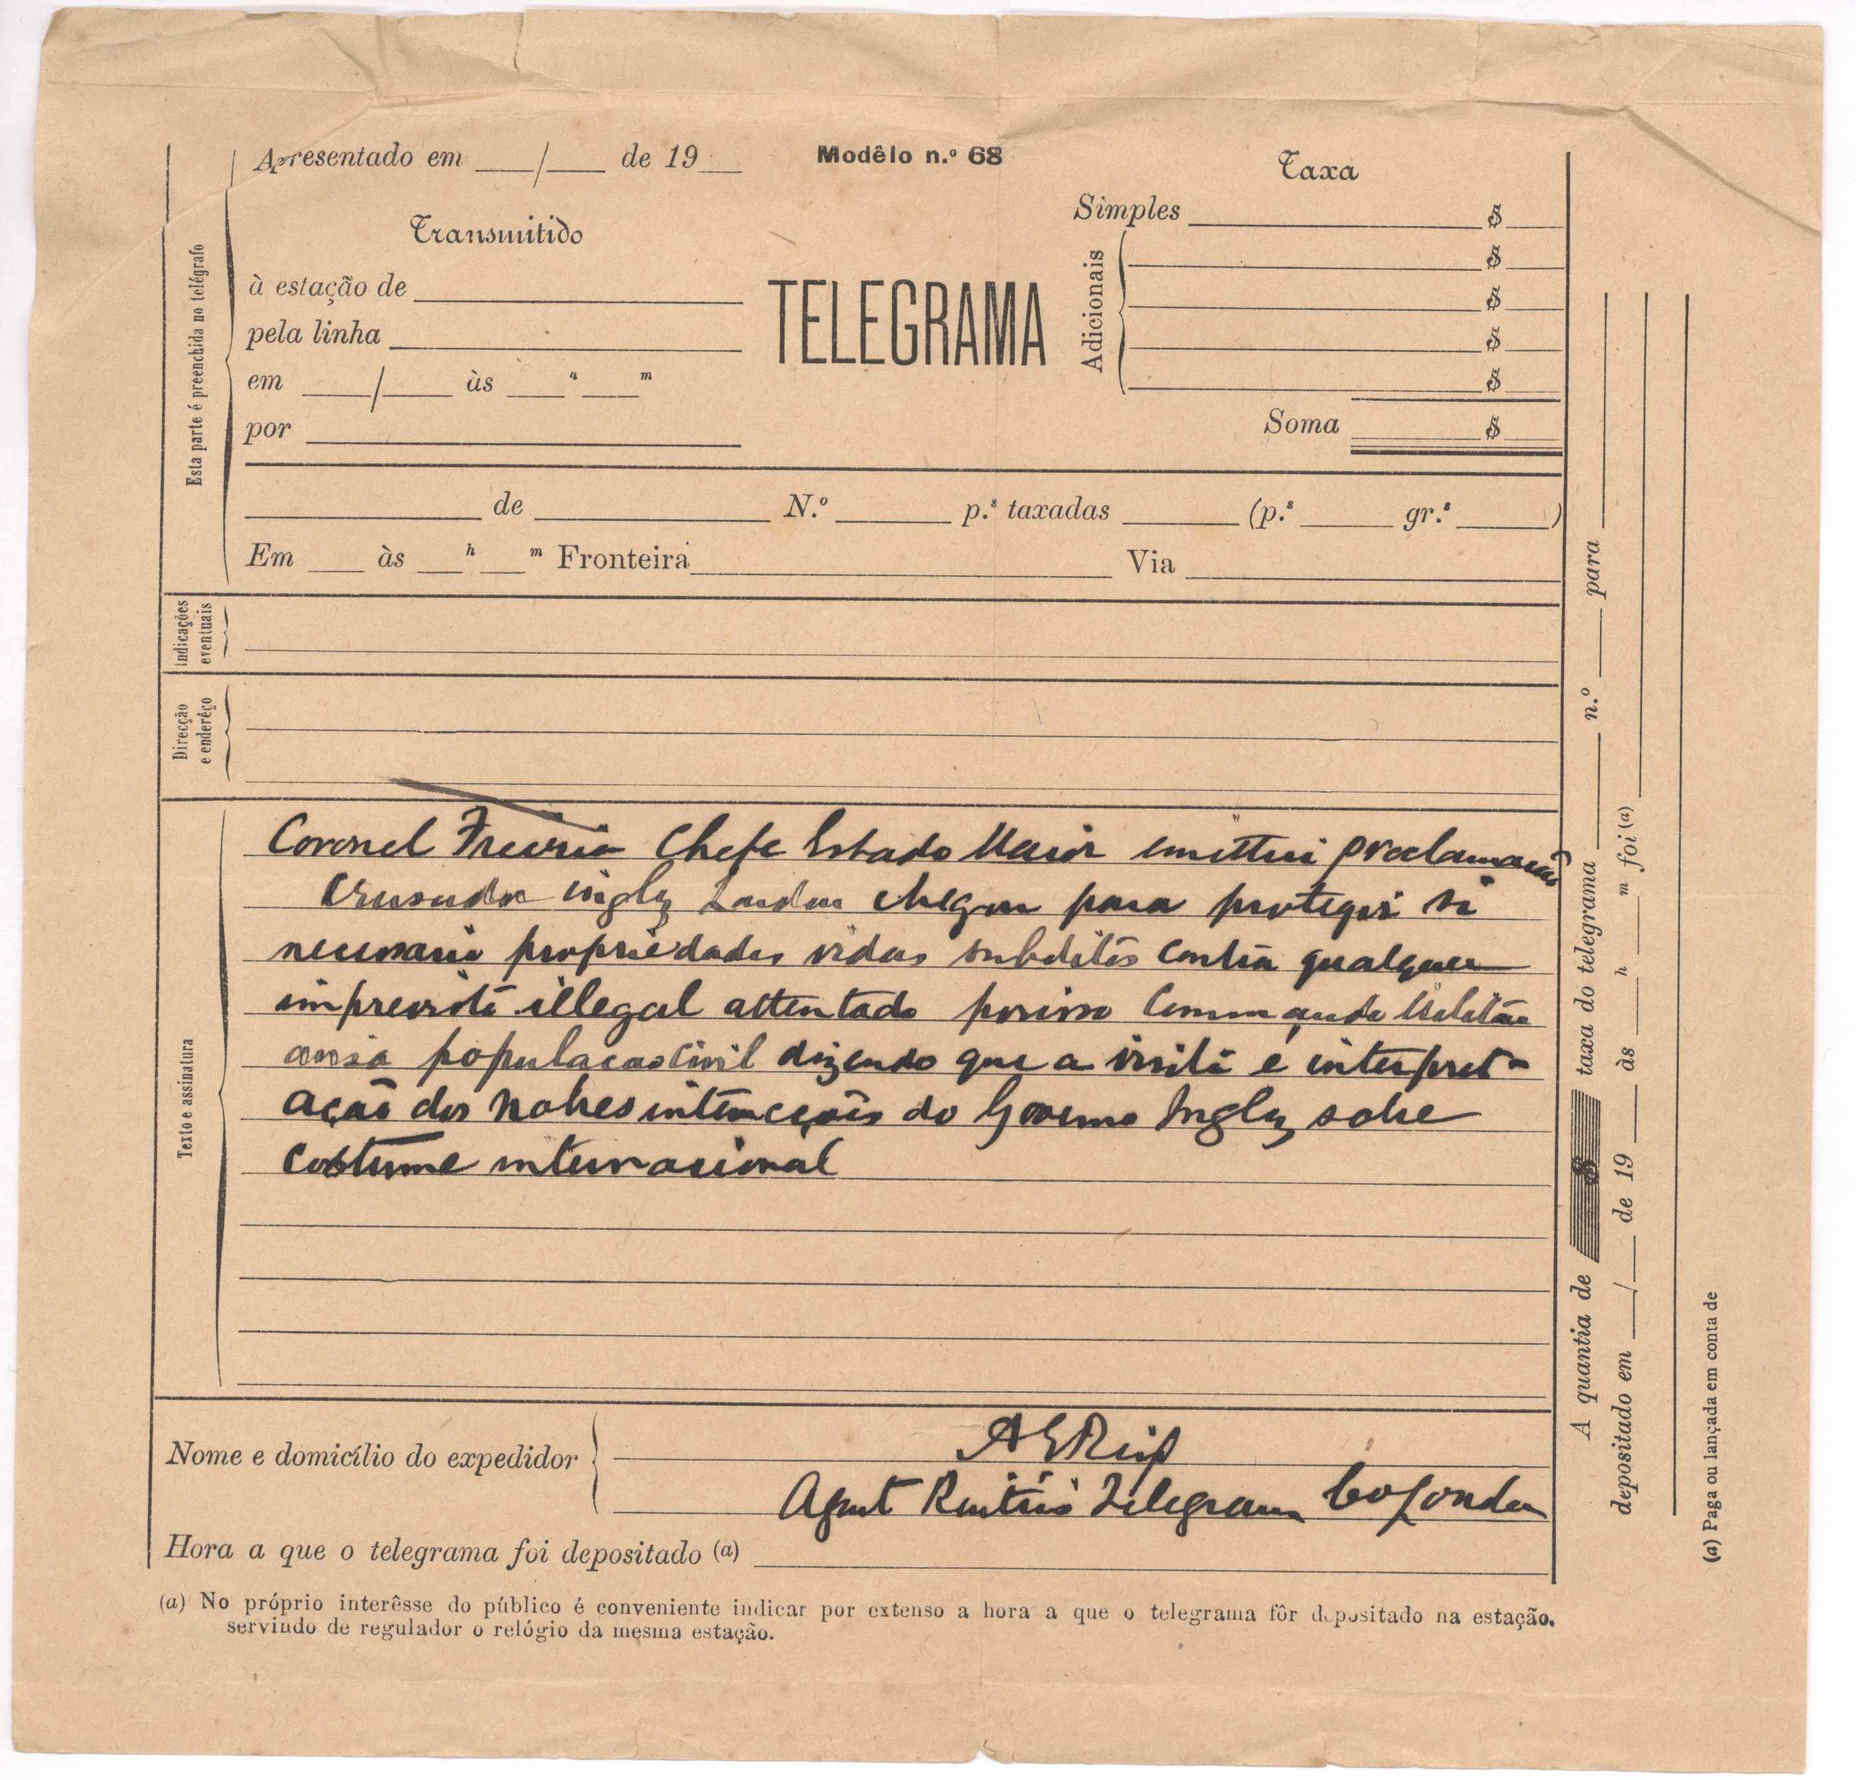 Apresentado em ___/___ de 19___
Modêlo n.º 68
Taxa
Transmitido
Simples $
Esta parte é preenchida no telégrafo
à estação de
TELEGRAMA
Adicionais
$
$
$
$
pela linha
em ___/___ às ___ h ___ m
por
Soma $
de N.º p.s taxadas (p.s gr.s )
Em às h m Fronteira Via
Indicações
eventuais
Direcção
e enderêço
Texto e assinatura
Coronel Freiria Chefe Estado Maior emittiu proclamação
Crusador inglez London chegou para proteger si
necessario propriedades vidas subditos contra qualquer
imprevisto illegal attentado porisso Commando Militar
avisa populacao civil dizendo que a visita é interpret-
ação dos nobres intencções do Governo Inglez sobre
costume internacional
Nome e domicílio do expedidor
Agent Reuters Telegram Co London
Hora a que o telegrama foi depositado (a)
(a) No próprio interêsse do público é conveniente indicar por extenso a hora a que o telegrama fôr depositado na estação.
servindo de regulador o relógio da mesma estação.
A quantia de $ taxa do telegrama n.º para
depositado em ___/___ de 19 às h m foi (a)
(a) Paga ou lançada em conta de